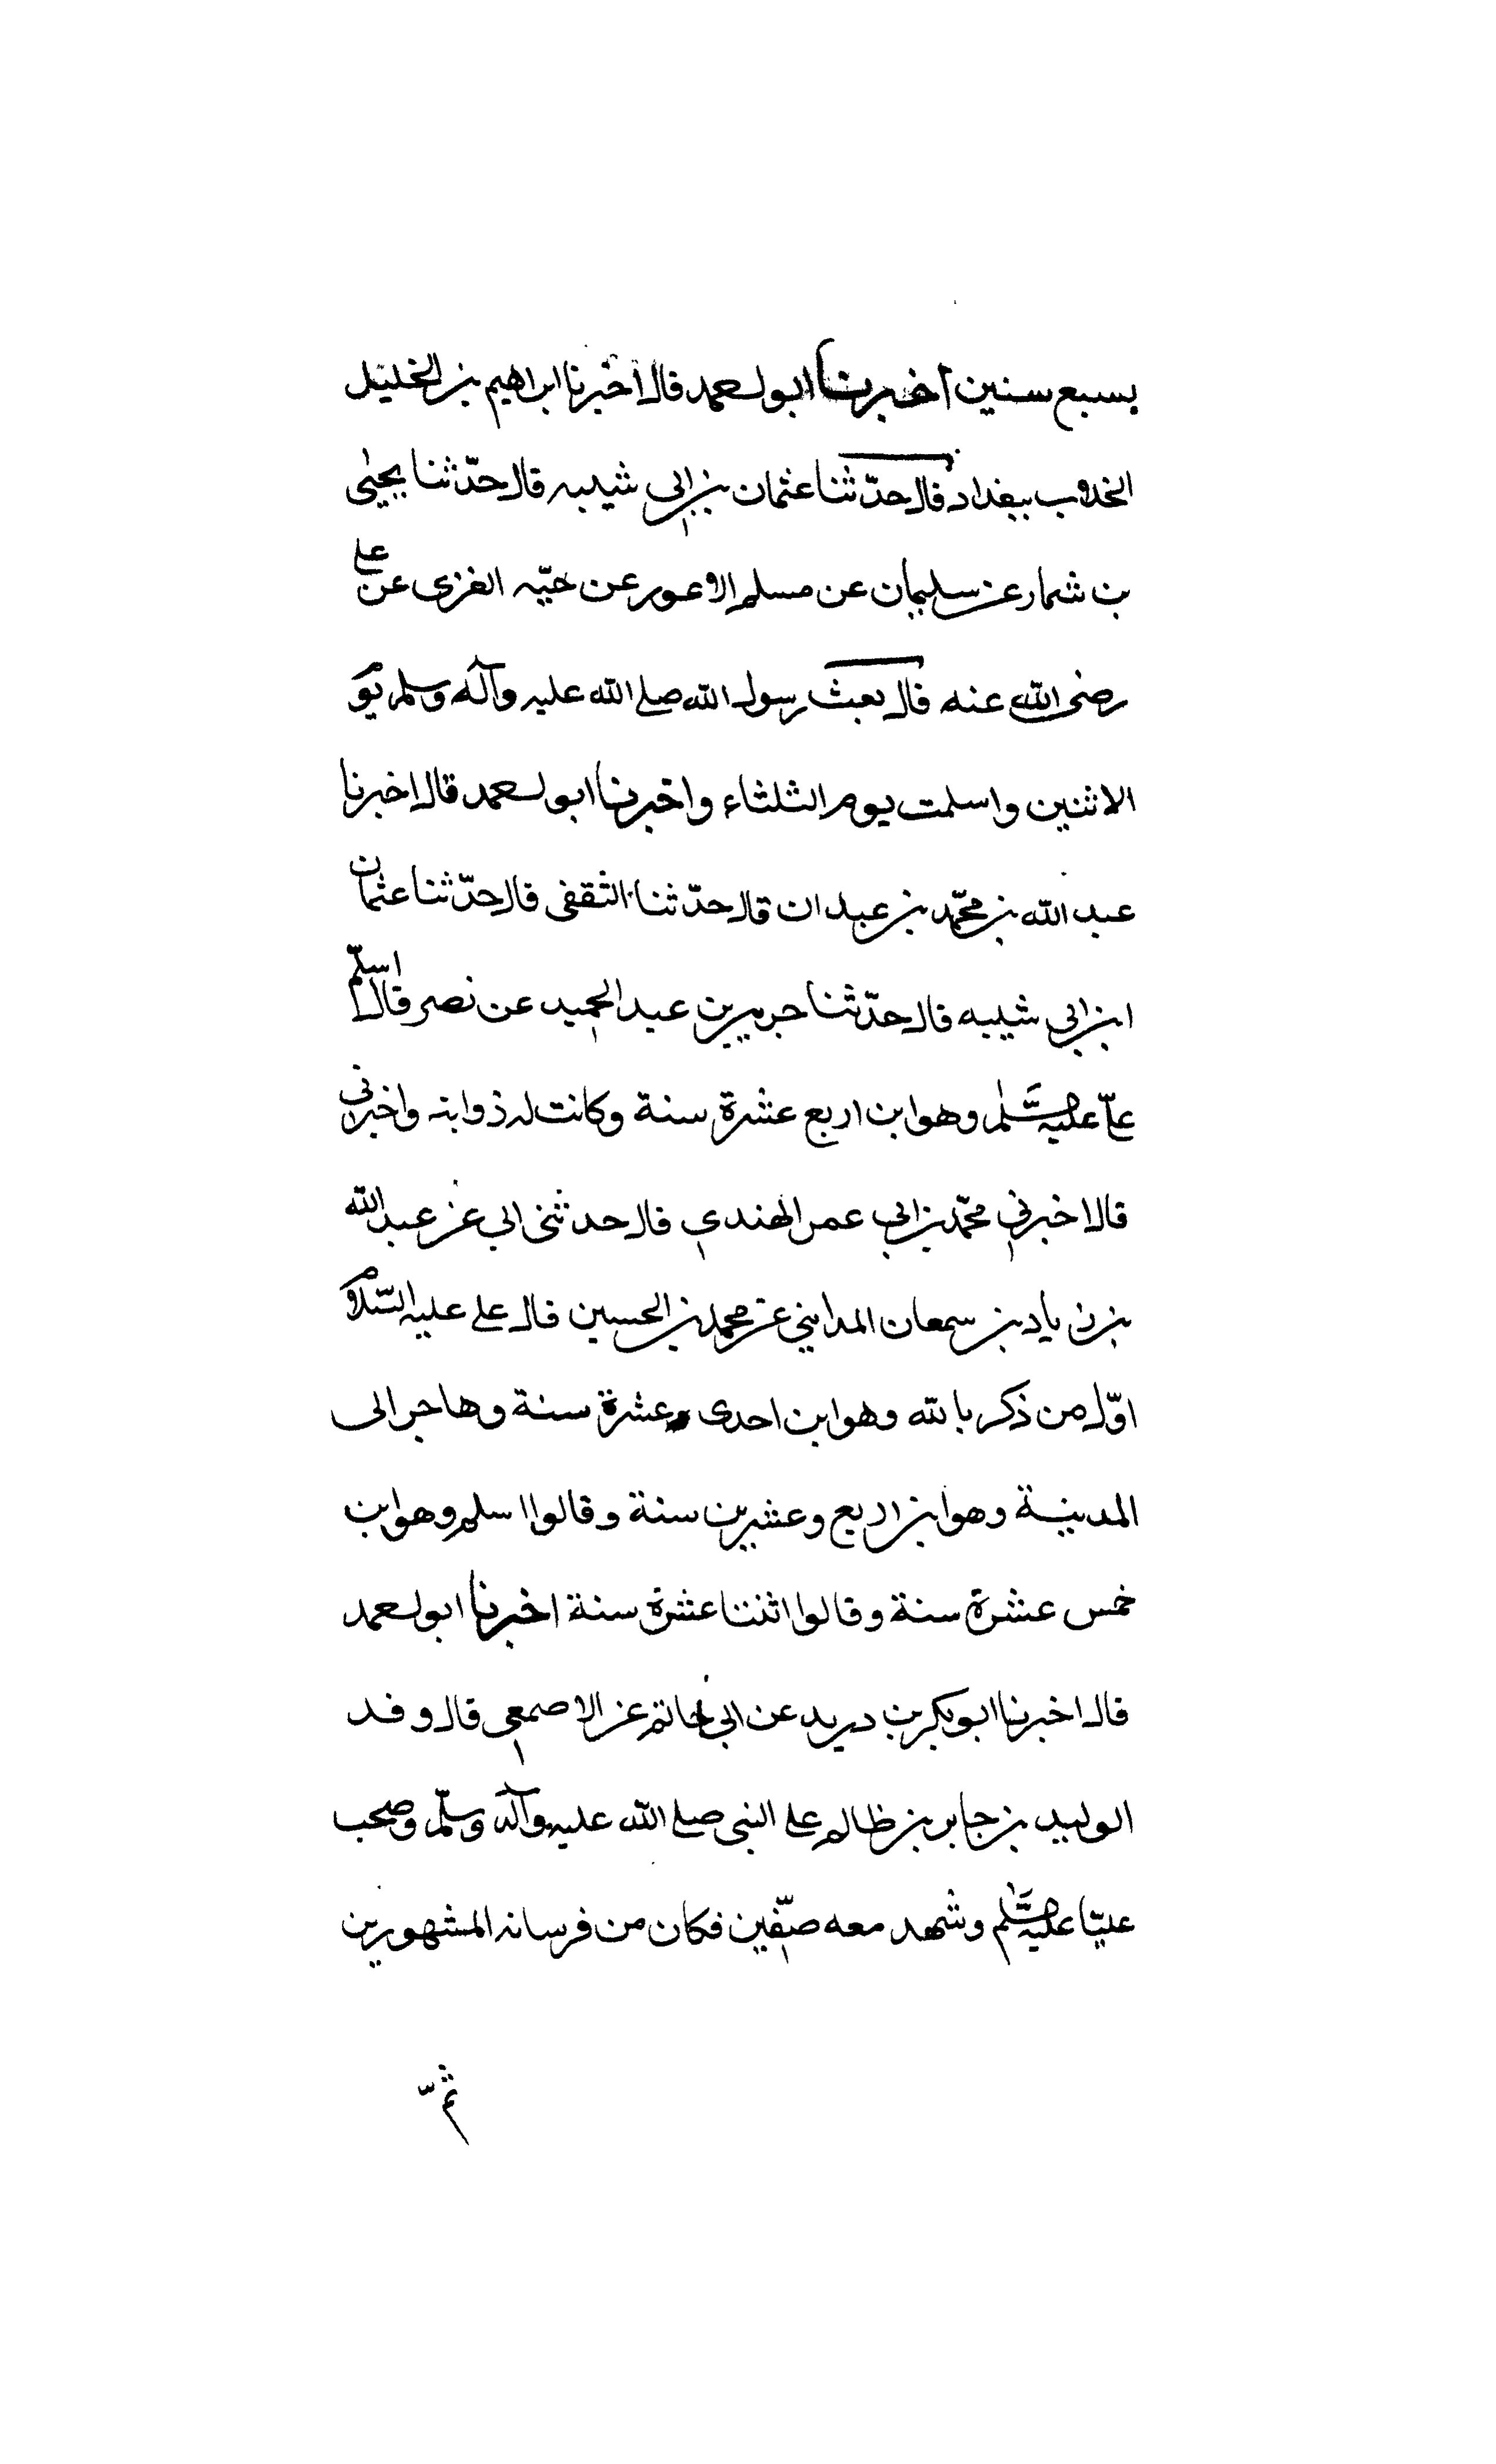 بسبع سنين اخبرنا ابو لحمد قال اخبرنا ابراهيم بن الخليل
ببغداد قال حدّثنا عثمان بن ابي شيبه قال حدّثنا يحيى
بن شمار عن سليمان عن مسلم الاعور عن حيّه العزى عن على
رضى الله عنه قال بعث رسول الله صلى الله عليه وآله وسلم يوم
الاثنين واسلمت يوم الثلثاء واخبرنا ابو لحمد قال اخبرنا
عبد الله بن محمّد بن عبدان قال حدّثنا الثقفى قال حدّثنا عثمان
ابن ابي شيبه قال حدّثنا جرير بن عبد الحميد عن نصر قال اسلم
علىّ عليه السّلم وهو ابن اربع عشرة سنة وكانت له ذوابته واخبرني
قال اخبرني محمّد بن ابي عمر الهندي قال حدثنى ابي عن عبد الله
بن زياد بن سمعان المدايني عن محمد بن الحسين قال على عليه السّلام
اوّل من ذكر بالله وهو ابن احدى عشرة سنة وهاجر الى
المدينة وهو ابن اربع وعشرين سنة وقالوا اسلم وهو ابن
خمس عشرة سنة وقالوا اثنتا عشرة سنة اخبرنا ابو لحمد
قال اخبرنا ابو بكر بن دريد عن ابي حاتم عن الاصمعي قال وفد
الوليد بن جابر بن ظالم على النبى صلى الله عليه وآله وسلّم وصحب
عليّا عليه السّلم وشهد معه صفّين فكان من فرسانه المشهورين
ثمّ